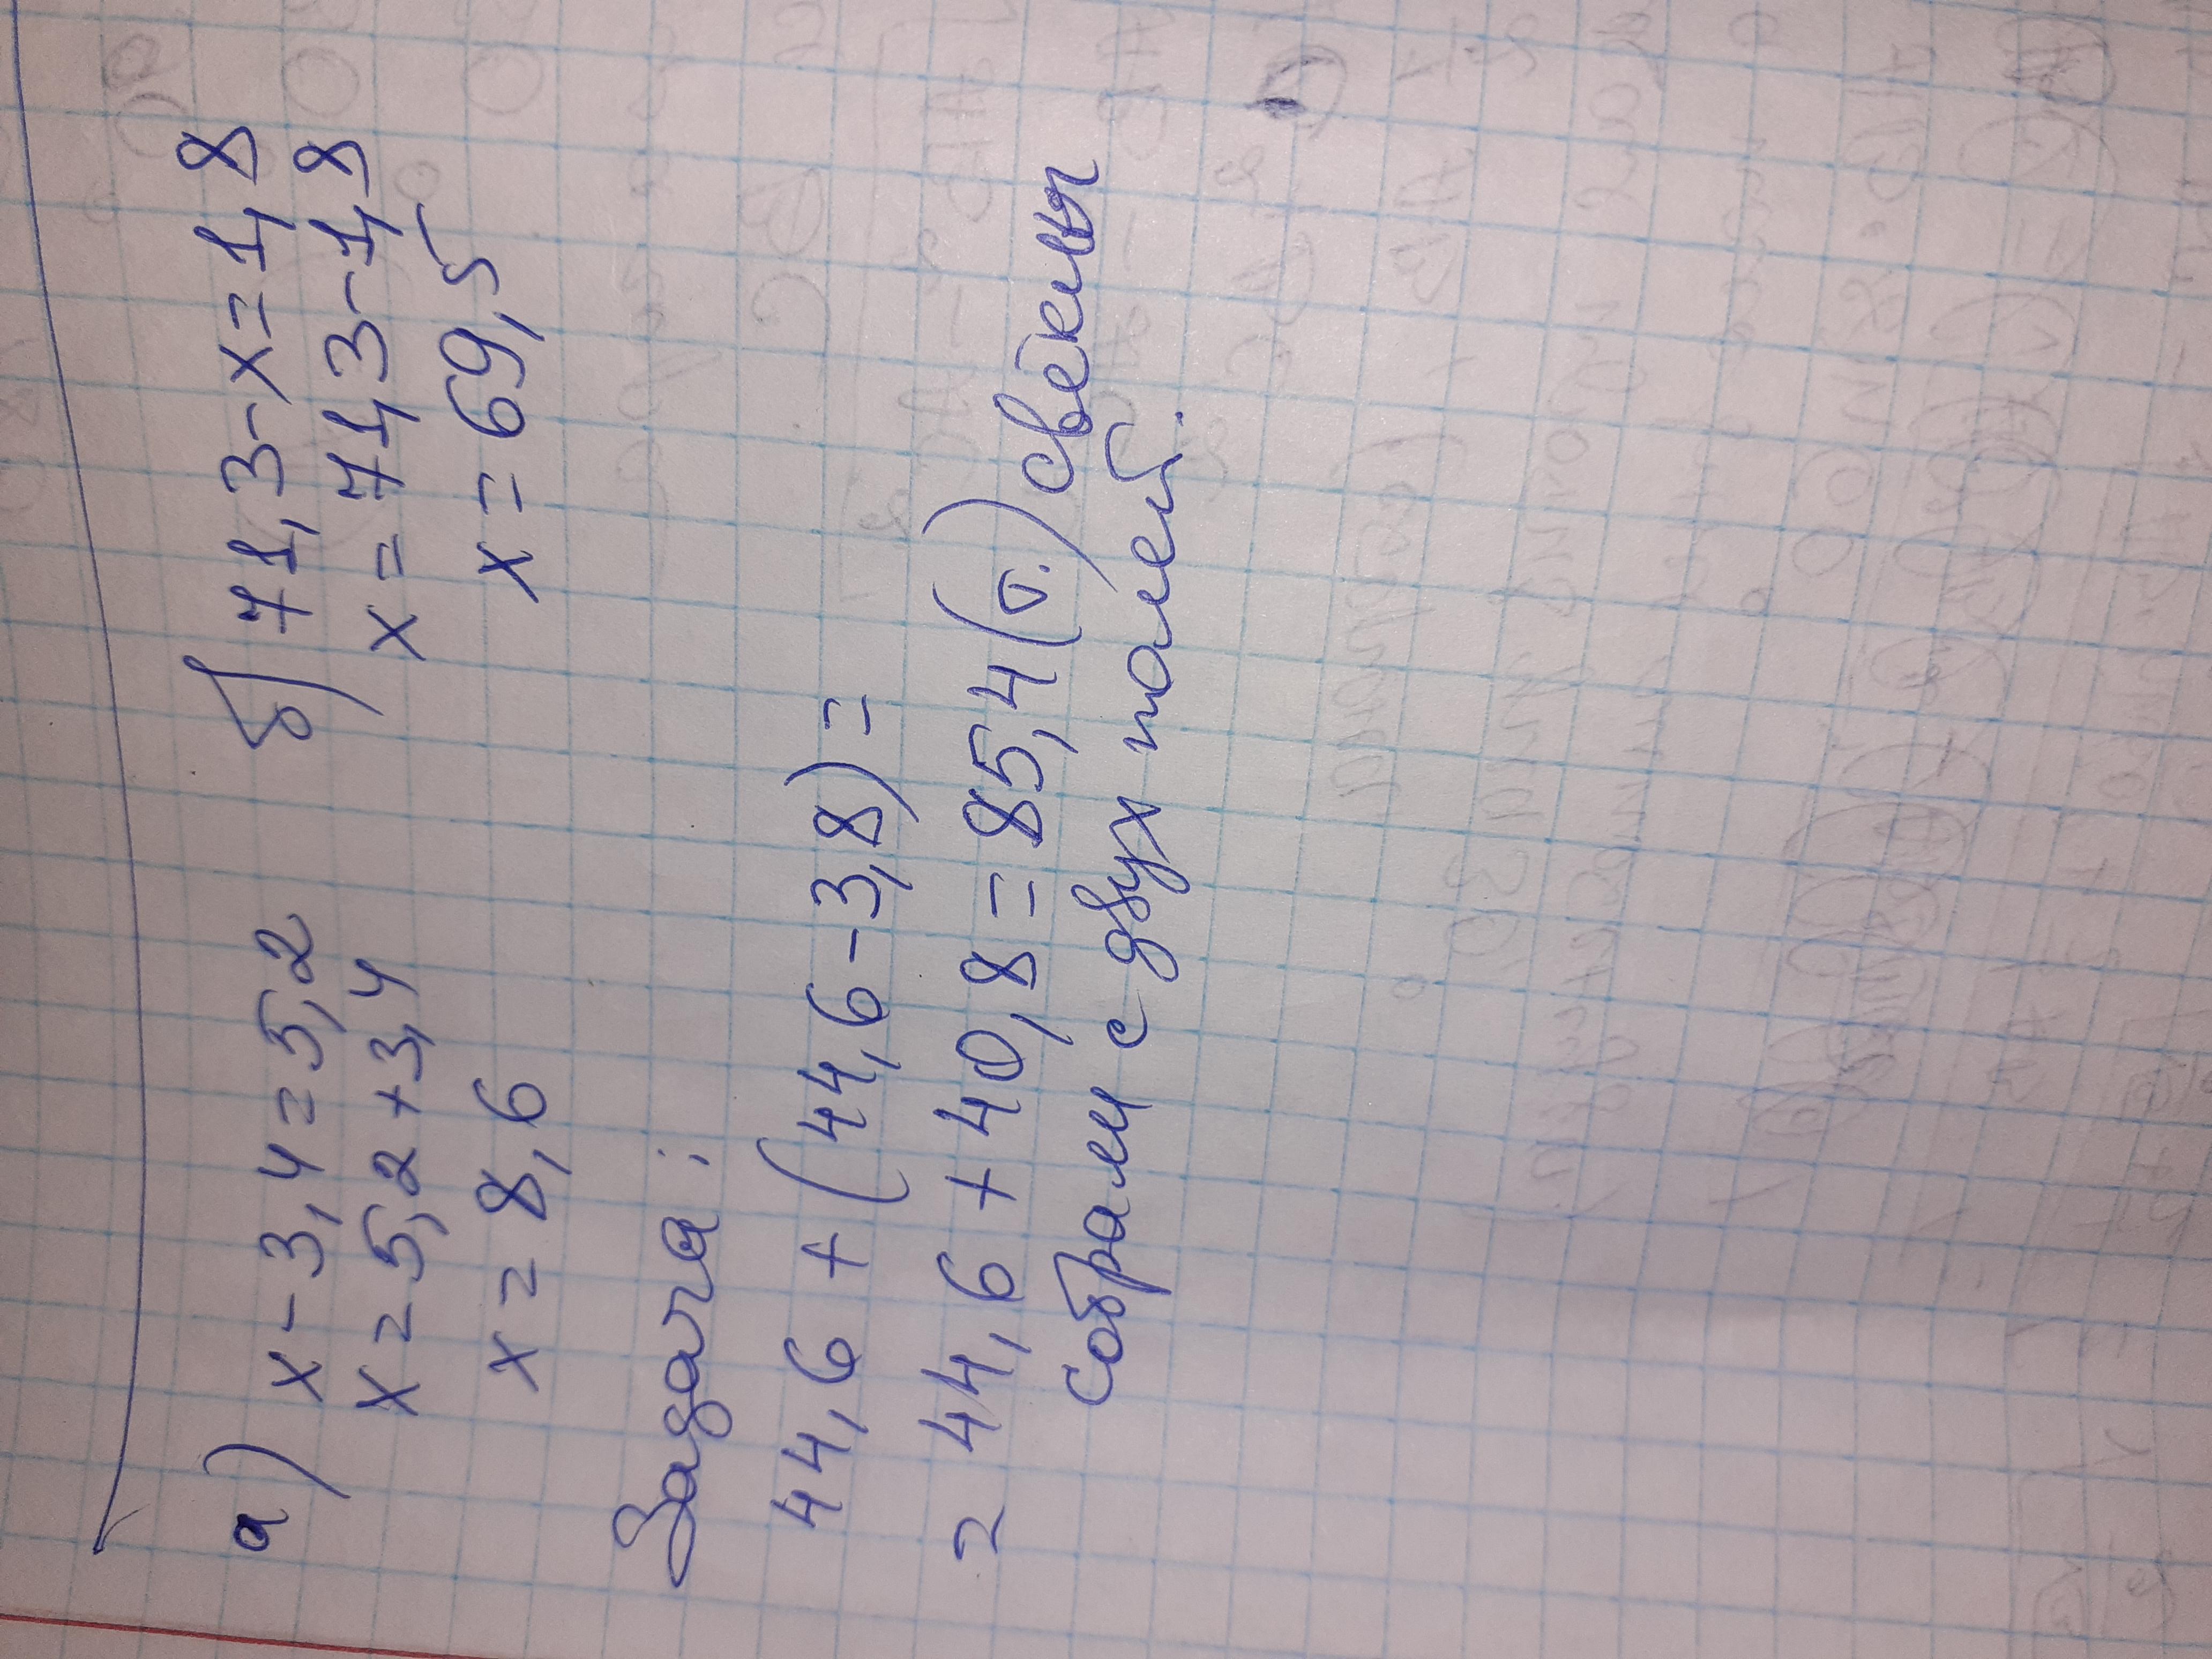 а) x-3,4=5,2   б) 71,3-x=1,8
x=5,2+3,4   x=71,3-1,8
x=8,6   x=69,5
Задача:
44,6+(44,6-3,8)=
= 44,6+40,8=85,4(т.) свеклы
собрали с двух полей.